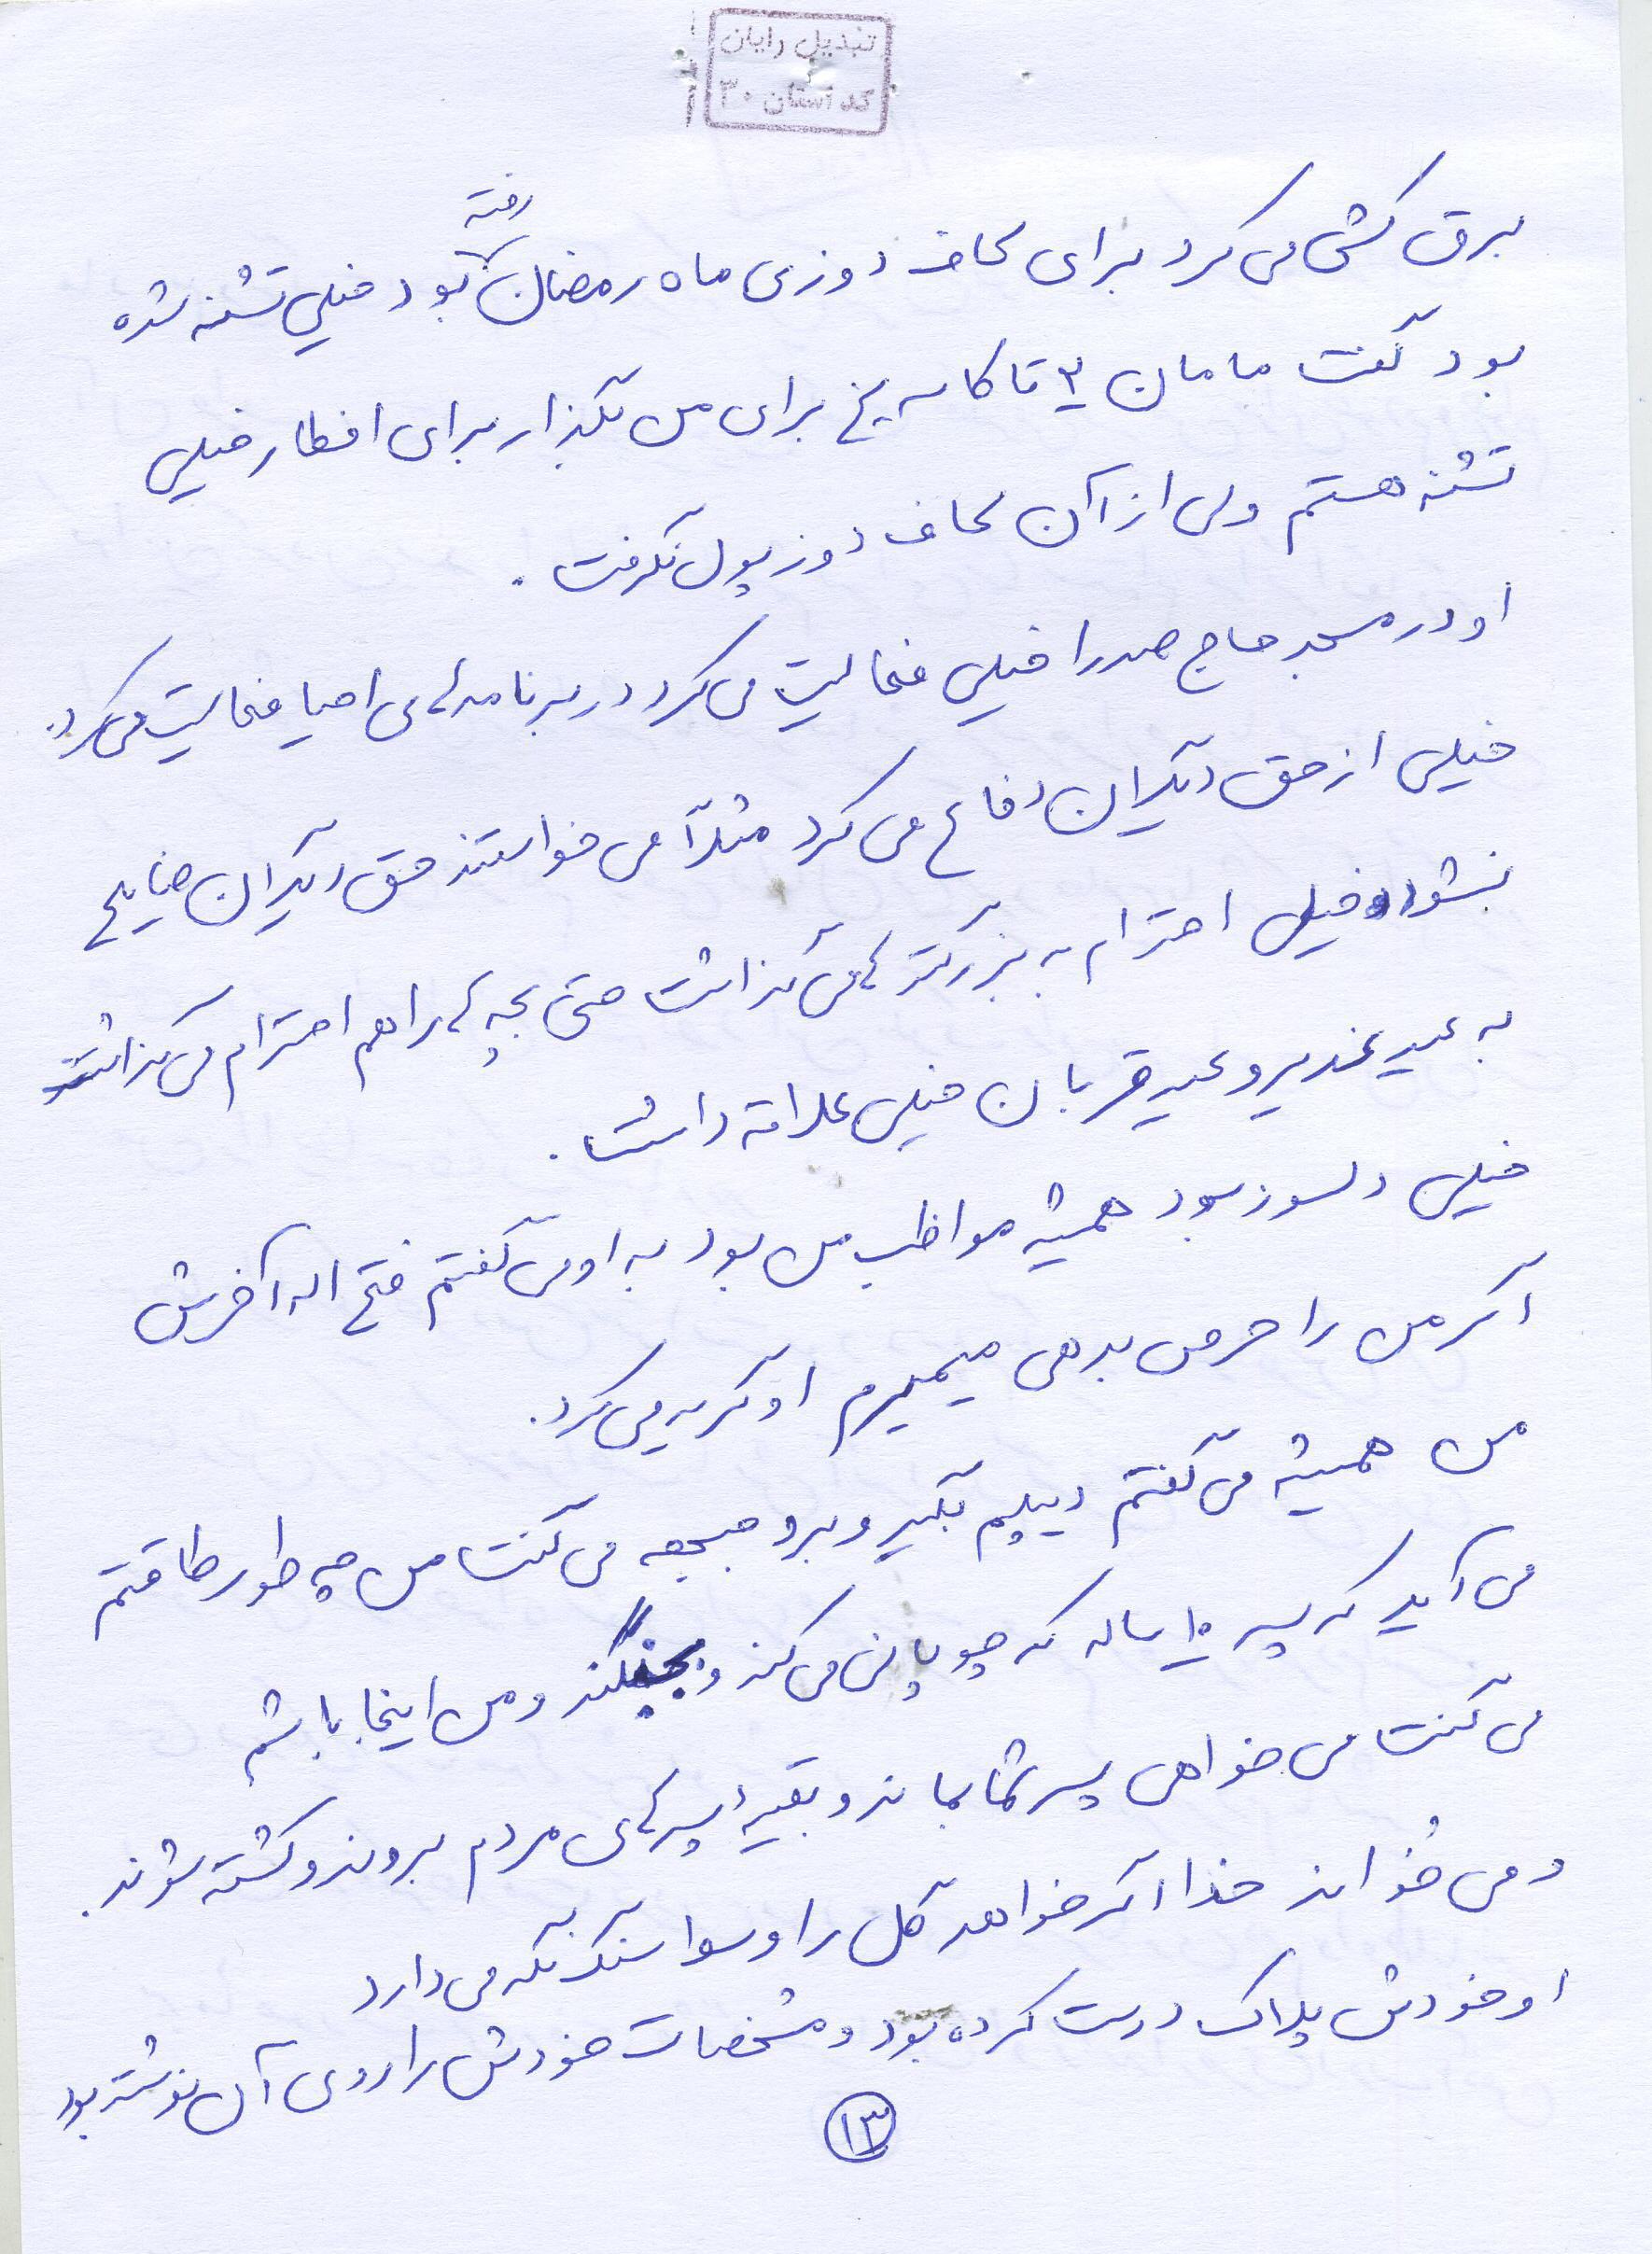 تبدیل رایان
کد استان ۳۰
رفته
برق کشی می کرد برای لحاف دوزی ماه رمضان بود خیلی تشنه شده
بود گفت مامان ۲ تا کاسه یخ برای من بگذار برای افطار خیلی
تشنه هستم ولی از آن لحاف دوز پول نگرفت .
او در مسجد حاج صدرا خیلی فعالیت می کرد در برنامه های احیا فعالیت می کرد.
خیلی از حق دیگران دفاع می کرد مثلاً می خواستند حق دیگران ضایع
نشود خیلی احترام به بزرگتر ها می گذاشت حتی بچه ها را هم احترام می گذاشت
به عید غدیر و عید قربان خیلی علاقه داشت .
خیلی دلسوز بود همیشه مواظب من بود به او می گفتم فتح اله آخرش
اگر من را حرص بدهی میمیرم او گریه می کرد.
من همیشه می گفتم دیپلم بگیر و برو جبهه می گفت من چه طور طاقتم
می آید که پسر ۱۰ ساله که چوپانی می کند و بجنگند و من اینجا باشم
می گفت می خواهی پسر شما بماند و بقیهٔ پسرهای مردم بروند و کشته شوند.
و می خواند خدا اگر خواهد گل را وسوا سنگ نگه می دارد
او خودش پلاک درست کرده بود و مشخصات خودش را روی آن نوشته بود
۱۳